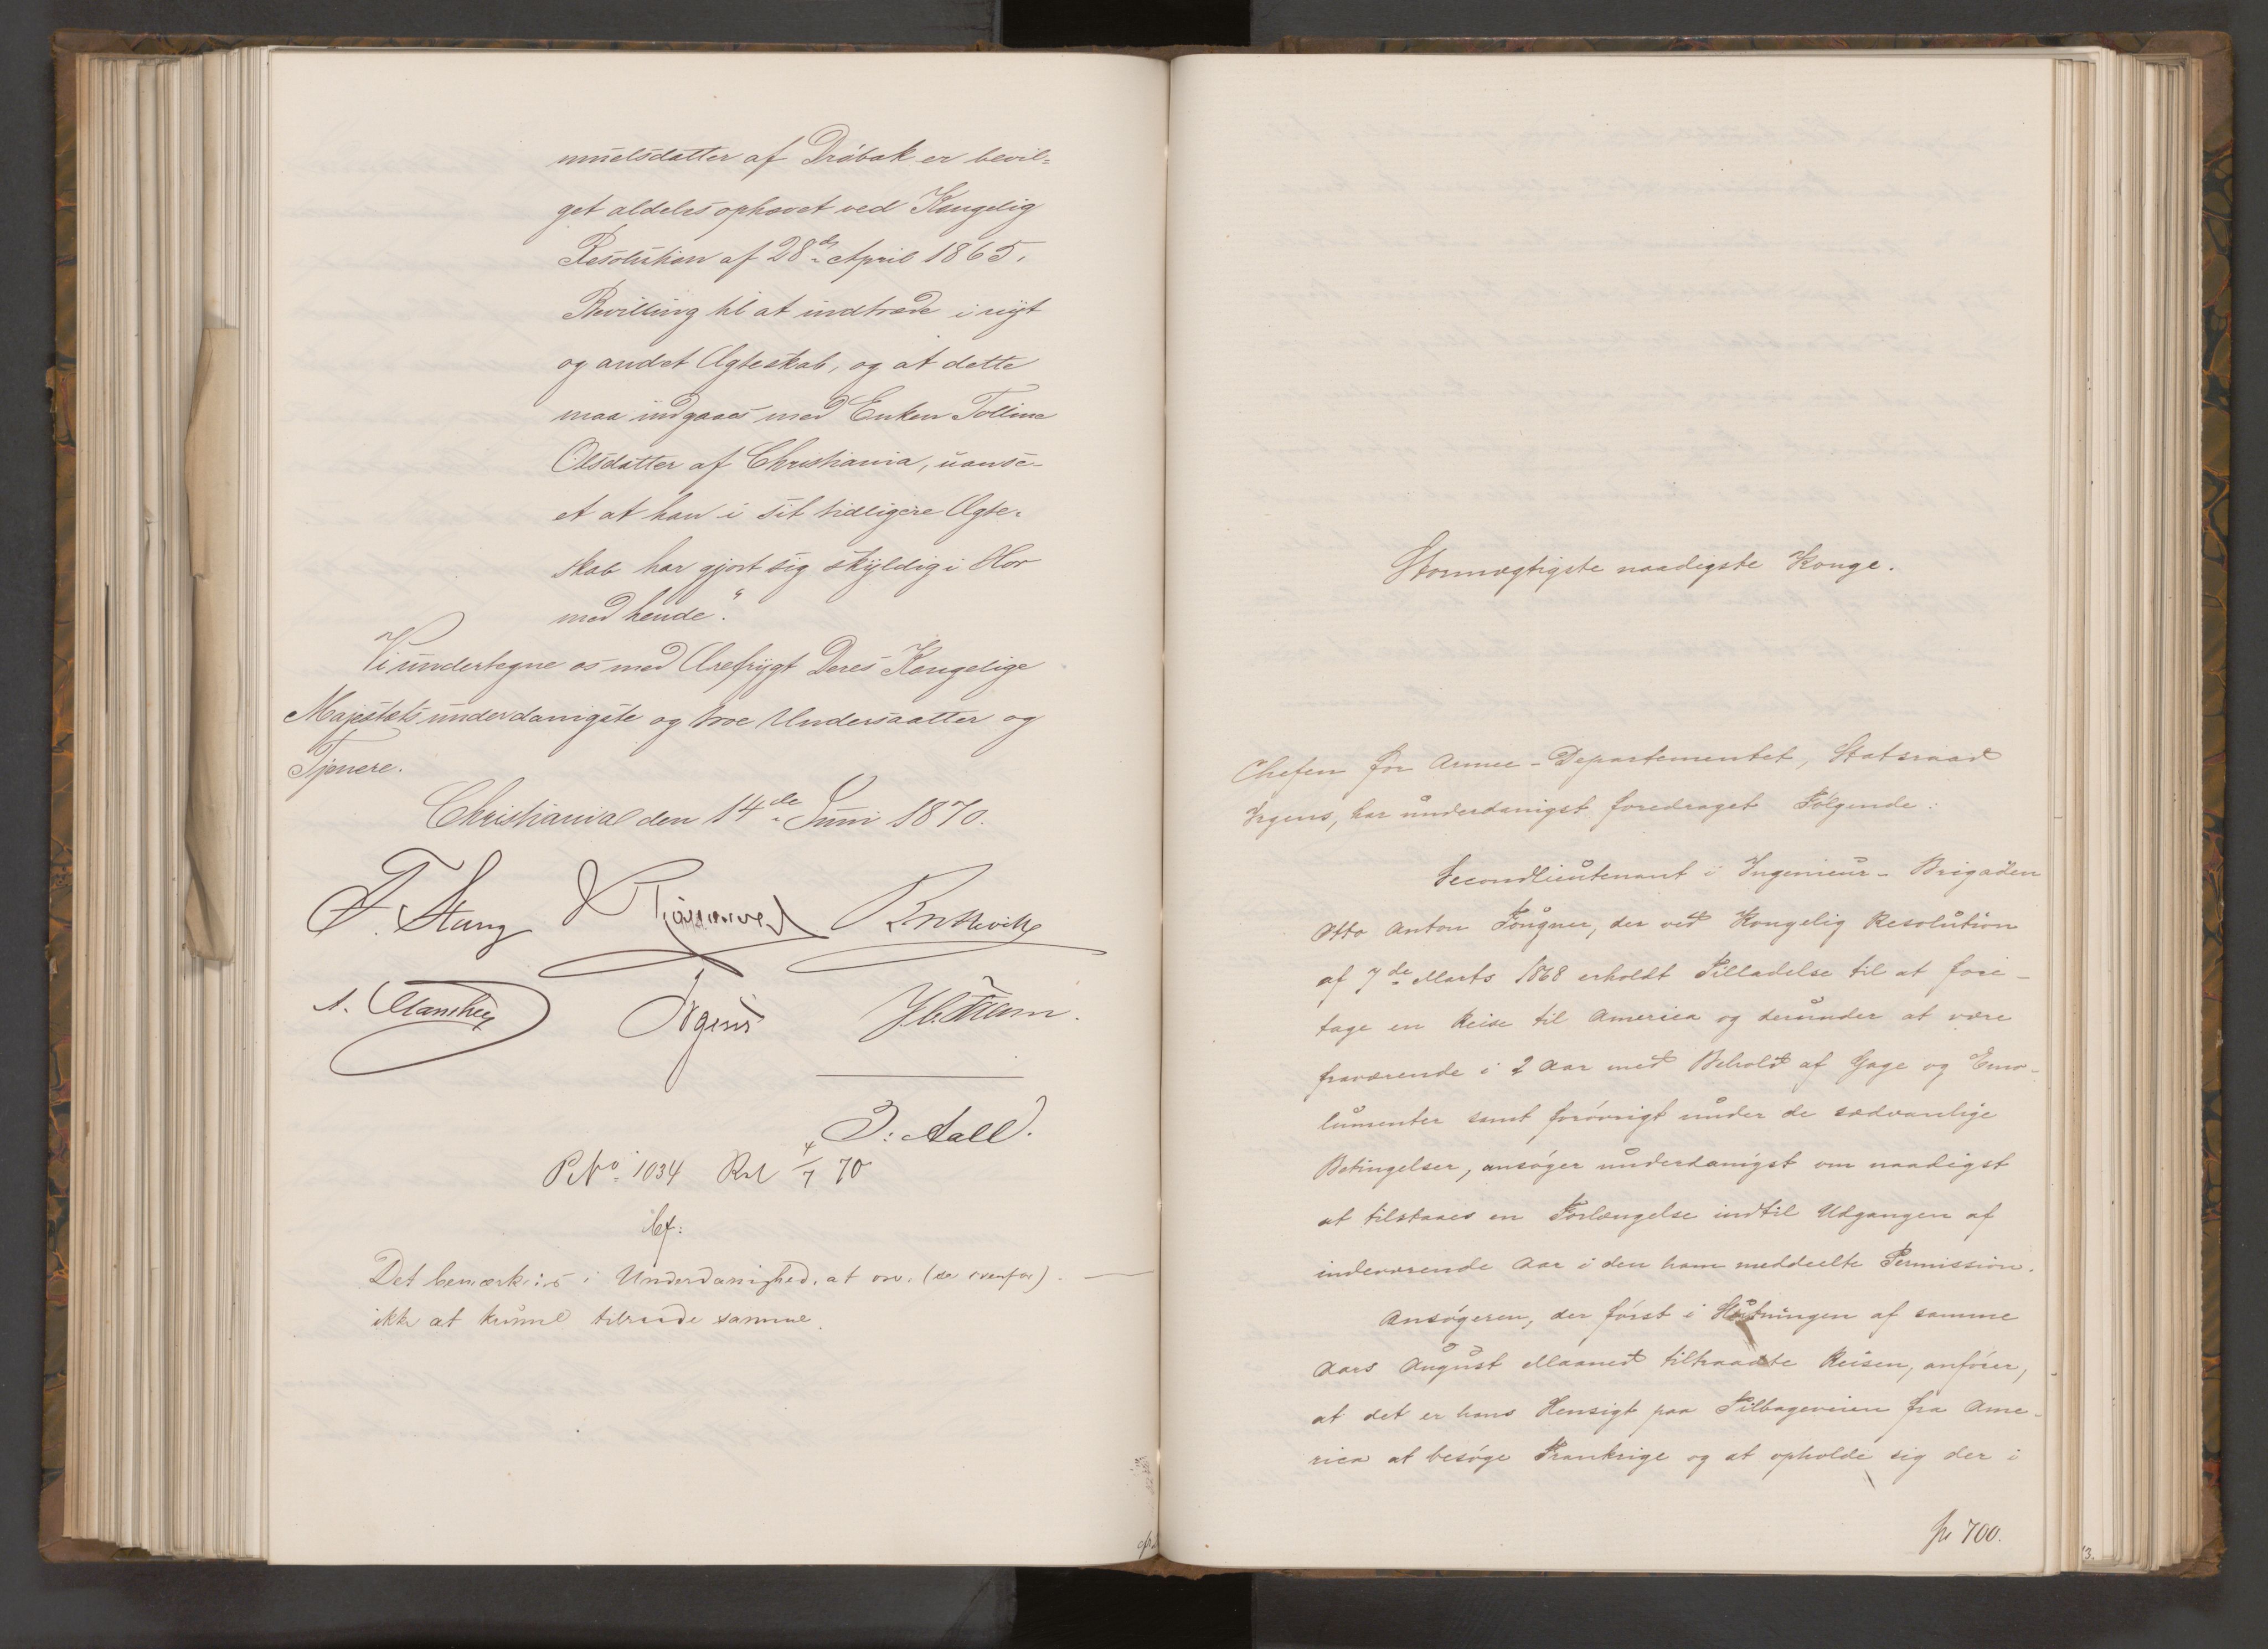 muelsdatter af Drøbak er bevil-
get aldeles ophævet ved Kongelig
Resolution af 28de April 1865.
Bevilling til at indtræde i nyt
og andet Ægteskab, og at dette
maa indgaaes med Enken Tolline
Olsdatter af Christiania, uanse-
et at han i sit tidligere Ægte-
skab har gjort sig skyldig i Hor
med hende."
Vi undertegne os med Ærefrygt Deres Kongelige
Majestæts underdanigste og troe Undersaatter og
Tjenere.
Christiania den 14de Juni 1870.
F. Stang
A. Manthey Irgens
J. Aall.
P. No 1034 Rel 4/7 70
Cf:
Det bemærkes i Underdanighed, at (se ovenfor)
ikke at kunne tilraade samme.
Stormægtigste naadigste Konge.
Chefen for Armee-Departementet, Statsraad
Irgens, har underdanigst foredraget Følgende:
Secondlieutenant i Ingenieur-Brigaden
Otto Anton Fougner, der ved Kongelig Resolution
af 7de Marts 1868 erholdt Tilladelse til at fore-
tage en Reise til America og derunder at være
fraværende i 2 Aar med Behold af Gage og Emo-
lumenter samt forøvrigt under de sædvanlige
Betingelser, ansøger underdanigst om naadigst
at tilstaaes en Forlængelse indtil Udgangen af
indeværende Aar i den ham meddeelte Permission.
Ansøgeren, der først i Slutningen af samme
Aars August Maaned tiltraadte Reisen, anfører,
at det er hans Hensigt paa Tilbageveien fra Ame-
rica at besøge Frankrige og at opholde sig der i
700.